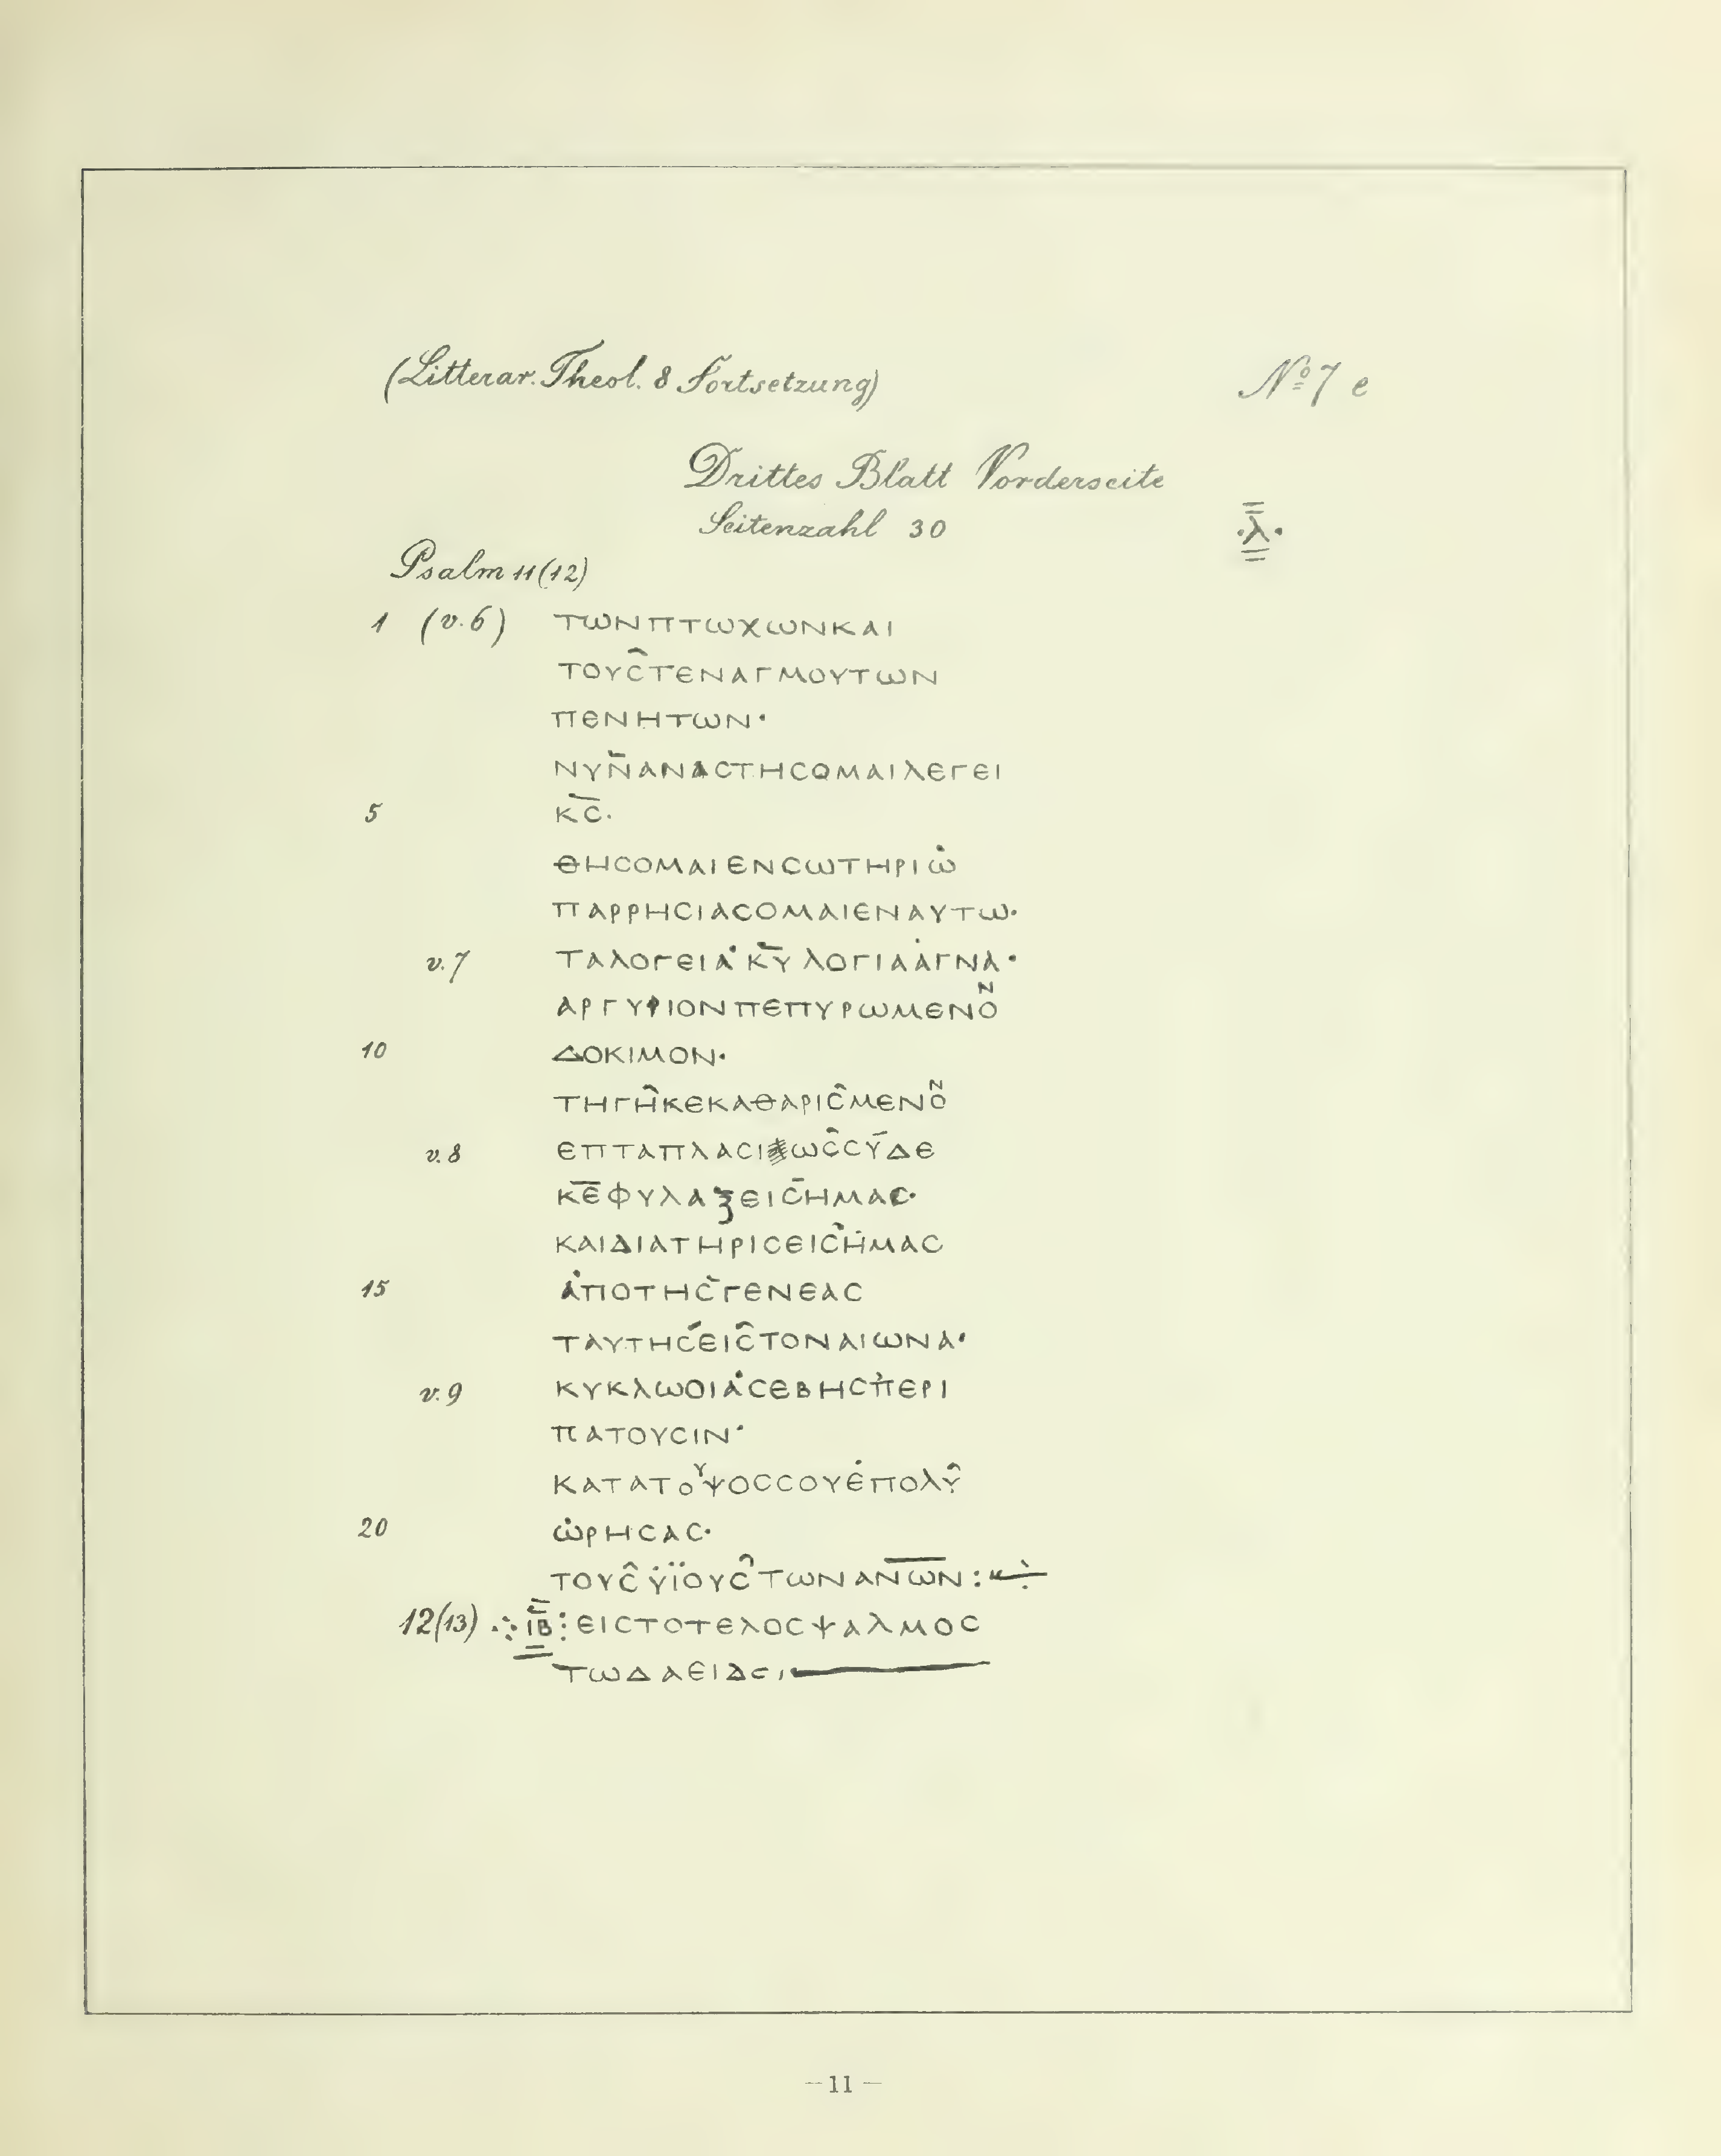 (Litterar. Theol. 8 Fortsetzung) Nº 7 e
Drittes Blatt Vorderseite
Seitenzahl 30 ·λ̄·
Psalm 11(12)
1 (v.6) ΤΩΝΠΤΩΧΩΝΚΑΙ
ΤΟΥϹ̂ΤΕΝΑΓΜΟΥΤΩΝ
ΠΕΝΗΤΩΝ·
ΝΥΝ̄ΑΝΑϹΤΗϹΟΜΑΙΛΕΓΕΙ
5 ΚϹ̄·
ΘΗϹΟΜΑΙΕΝϹΩΤΗΡΙΩ̇
ΠΑΡΡΗϹΙΑϹΟΜΑΙΕΝΑΥΤΩ·
v.7 ΤΑΛΟΓΕΙΑ̇ ΚῩ ΛΟΓΙΑΑ̇ΓΝΑ̇·
ΑΡΓΥΡΙΟΝΠΕΠΥΡΩΜΕΝΟᴺ
10 ΔΟΚΙΜΟΝ·
ΤΗΓΗ̂ΚΕΚΑΘΑΡΙϹ̂ΜΕΝΟᴺ
v.8 ΕΠΤΑΠΛΑϹΙΩϹ̂ϹῩΔΕ
ΚΕ̄ΦΥΛΑΞΕΙϹ̄ΗΜΑϹ·
ΚΑΙΔΙΑΤΗΡΙϹΕΙϹ̂Η̇ΜΑϹ
15 Α̇ΠΟΤΗϹ̀ΓΕΝΕΑϹ
ΤΑΥΤΗϹ́ΕΙϹ̂ΤΟΝΑΙΩΝΑ·
v.9 ΚΥΚΛΩΟΙΑ̇ϹΕΒΗϹΠ̇ΕΡΙ
ΠΑΤΟΥϹΙΝ·
ΚΑΤΑΤΟʸΨΟϹϹΟΥΕ̇ΠΟΛΥ̂
20 Ω̇ΡΗϹΑϹ·
ΤΟΥϹ̂Υ̇ΪΟΥϹ̂ΤΩΝΑΝ̅Ω̅Ν̅:
12(13) ΙΒ̄: ΕΙϹΤΟΤΕΛΟϹΨΑΛΜΟϹ
ΤΩΔΑΕΙΔϹΙ
– 11 –